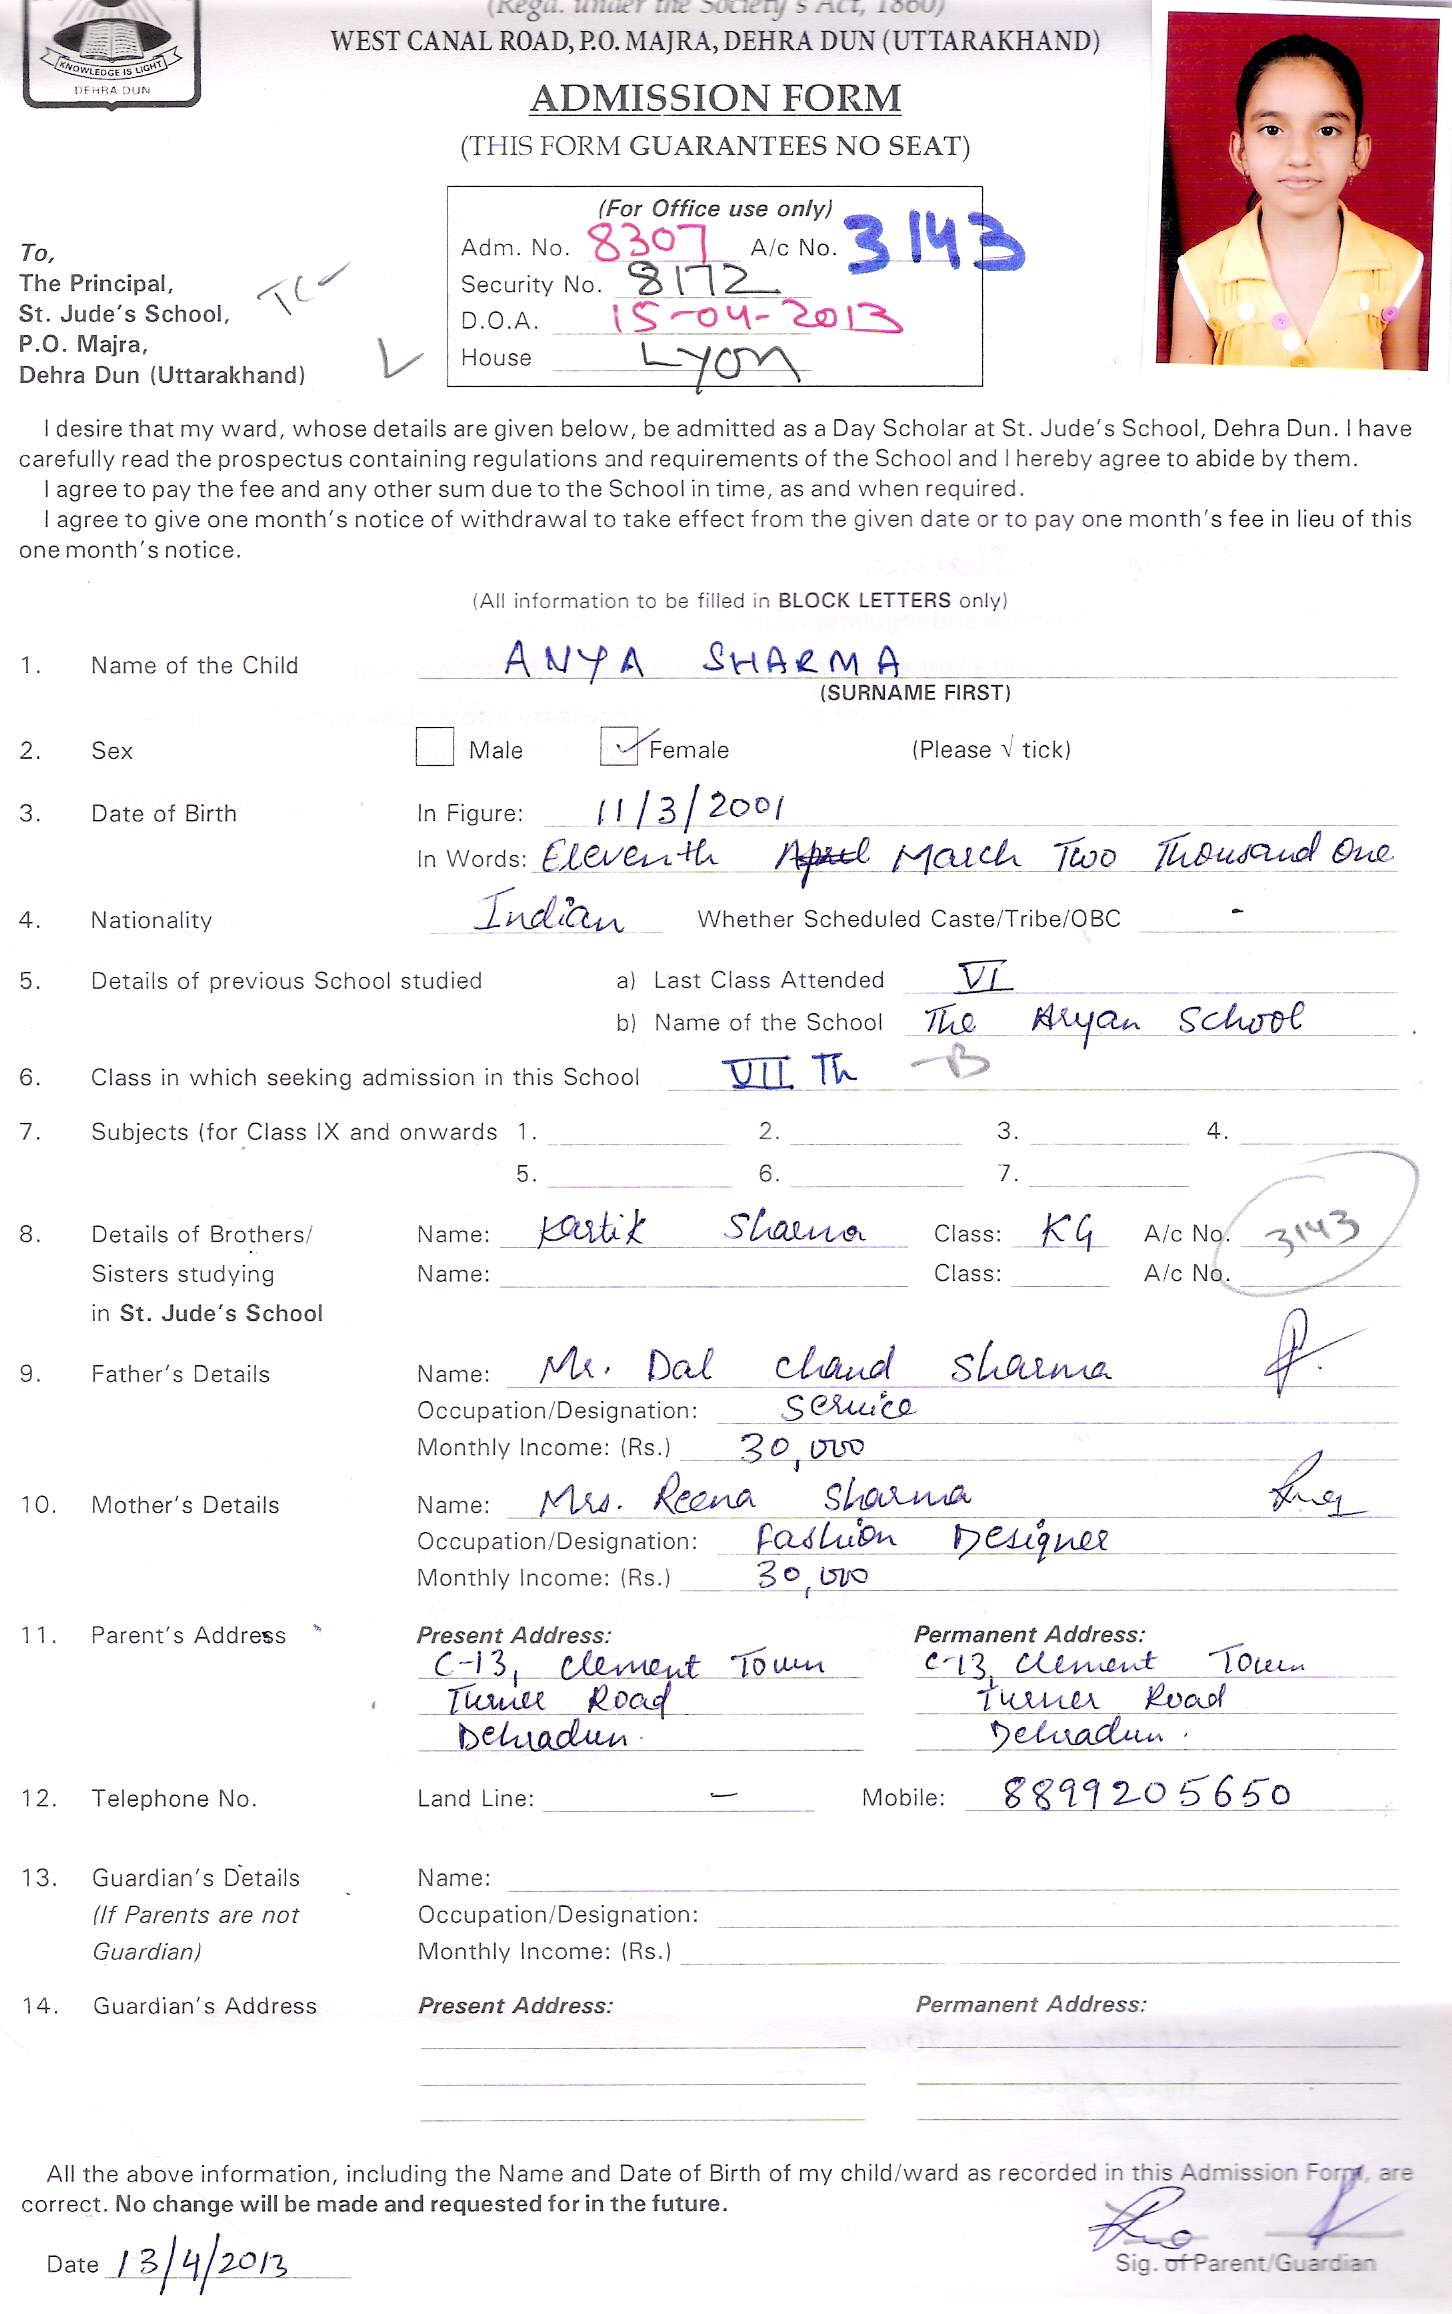 (Regd. under the Society's Act, 1860)
WEST CANAL ROAD, P.O. MAJRA, DEHRA DUN (UTTARAKHAND)
KNOWLEDGE IS LIGHT
DEHRA DUN
ADMISSION FORM
(THIS FORM GUARANTEES NO SEAT)
(For Office use only)
Adm. No. 8307 A/c No. 3143
Security No. 8172
D.O.A. 15-04-2013
House Lyon
To,
The Principal,
St. Jude's School,
P.O. Majra,
Dehra Dun (Uttarakhand)
TC
I desire that my ward, whose details are given below, be admitted as a Day Scholar at St. Jude's School, Dehra Dun. I have
carefully read the prospectus containing regulations and requirements of the School and I hereby agree to abide by them.
I agree to pay the fee and any other sum due to the School in time, as and when required.
I agree to give one month's notice of withdrawal to take effect from the given date or to pay one month's fee in lieu of this
one month's notice.
(All information to be filled in BLOCK LETTERS only)
1. Name of the Child ANYA SHARMA
(SURNAME FIRST)
2. Sex Male ✓ Female (Please √ tick)
3. Date of Birth In Figure: 11/3/2001
In Words: Eleventh April March Two Thousand One
4. Nationality Indian Whether Scheduled Caste/Tribe/OBC -
5. Details of previous School studied a) Last Class Attended VI
b) Name of the School The Aryan School
6. Class in which seeking admission in this School VII Th -B
7. Subjects (for Class IX and onwards 1. 2. 3. 4.
5. 6. 7.
8. Details of Brothers/ Name: Kartik Sharma Class: KG A/c No. 3143
Sisters studying Name: Class: A/c No.
in St. Jude's School
9. Father's Details Name: Mr. Dal Chand Sharma
Occupation/Designation: Service
Monthly Income: (Rs.) 30,000
10. Mother's Details Name: Mrs. Reena Sharma
Occupation/Designation: Fashion Designer
Monthly Income: (Rs.) 30,000
11. Parent's Address Present Address: Permanent Address:
C-13, Clement Town C-13, Clement Town
Turner Road Turner Road
Dehradun. Dehradun.
12. Telephone No. Land Line: - Mobile: 8899205650
13. Guardian's Details Name:
(If Parents are not Occupation/Designation:
Guardian) Monthly Income: (Rs.)
14. Guardian's Address Present Address: Permanent Address:
All the above information, including the Name and Date of Birth of my child/ward as recorded in this Admission Form, are
correct. No change will be made and requested for in the future.
Date 13/4/2013
Sig. of Parent/Guardian